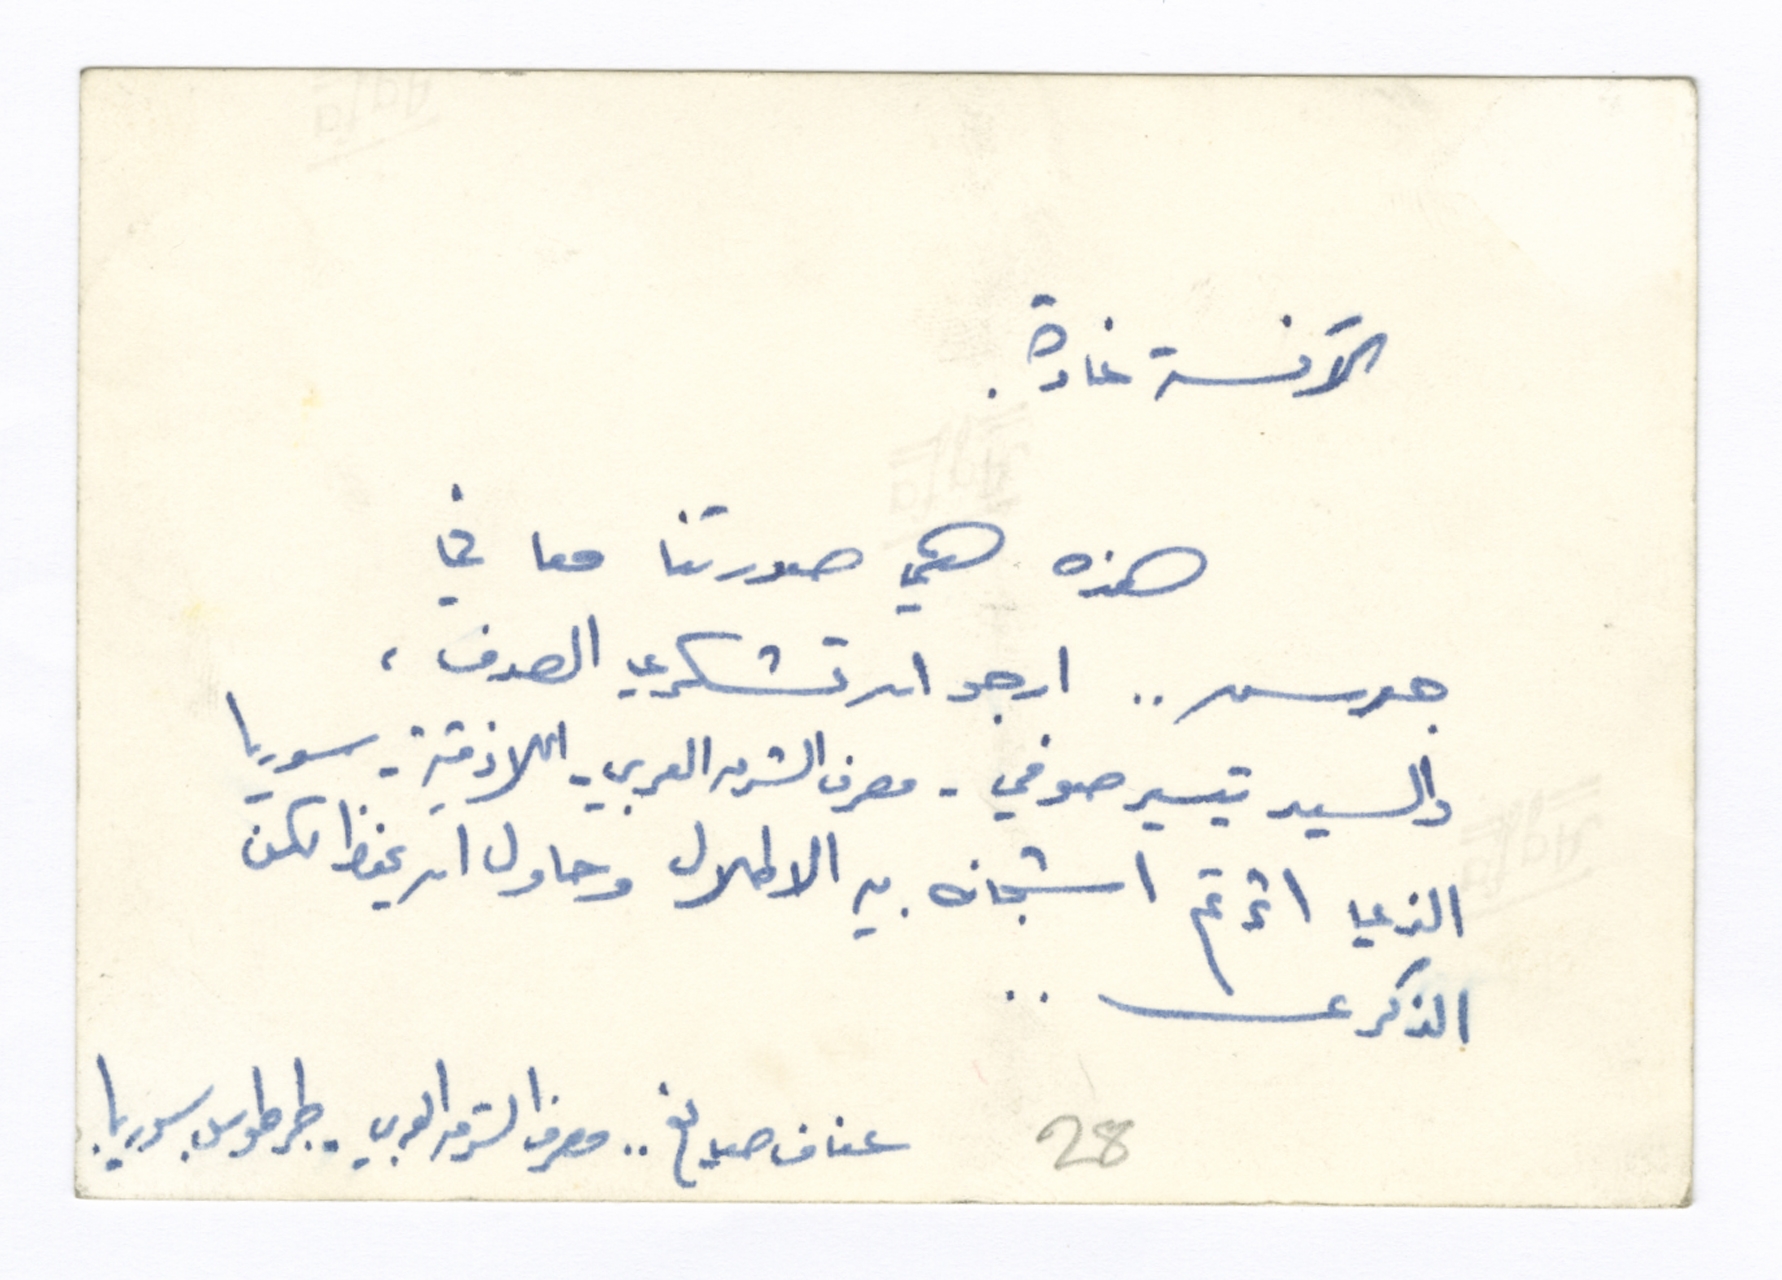 الآنسة غادة .
هذه هي صورتنا معا في
جرسن .. ارجو ان تشكري الصدف ،
والسيد تيسير صوفي - مصرف الشرق العربي - اللاذقية - سوريا
الذي اشجانه بين الاطلال وحاول ان يحفظ لكن
الذكرى ..
عفاف صايغ .. مصرف الشرق العربي - طرطوس سوريا .
28